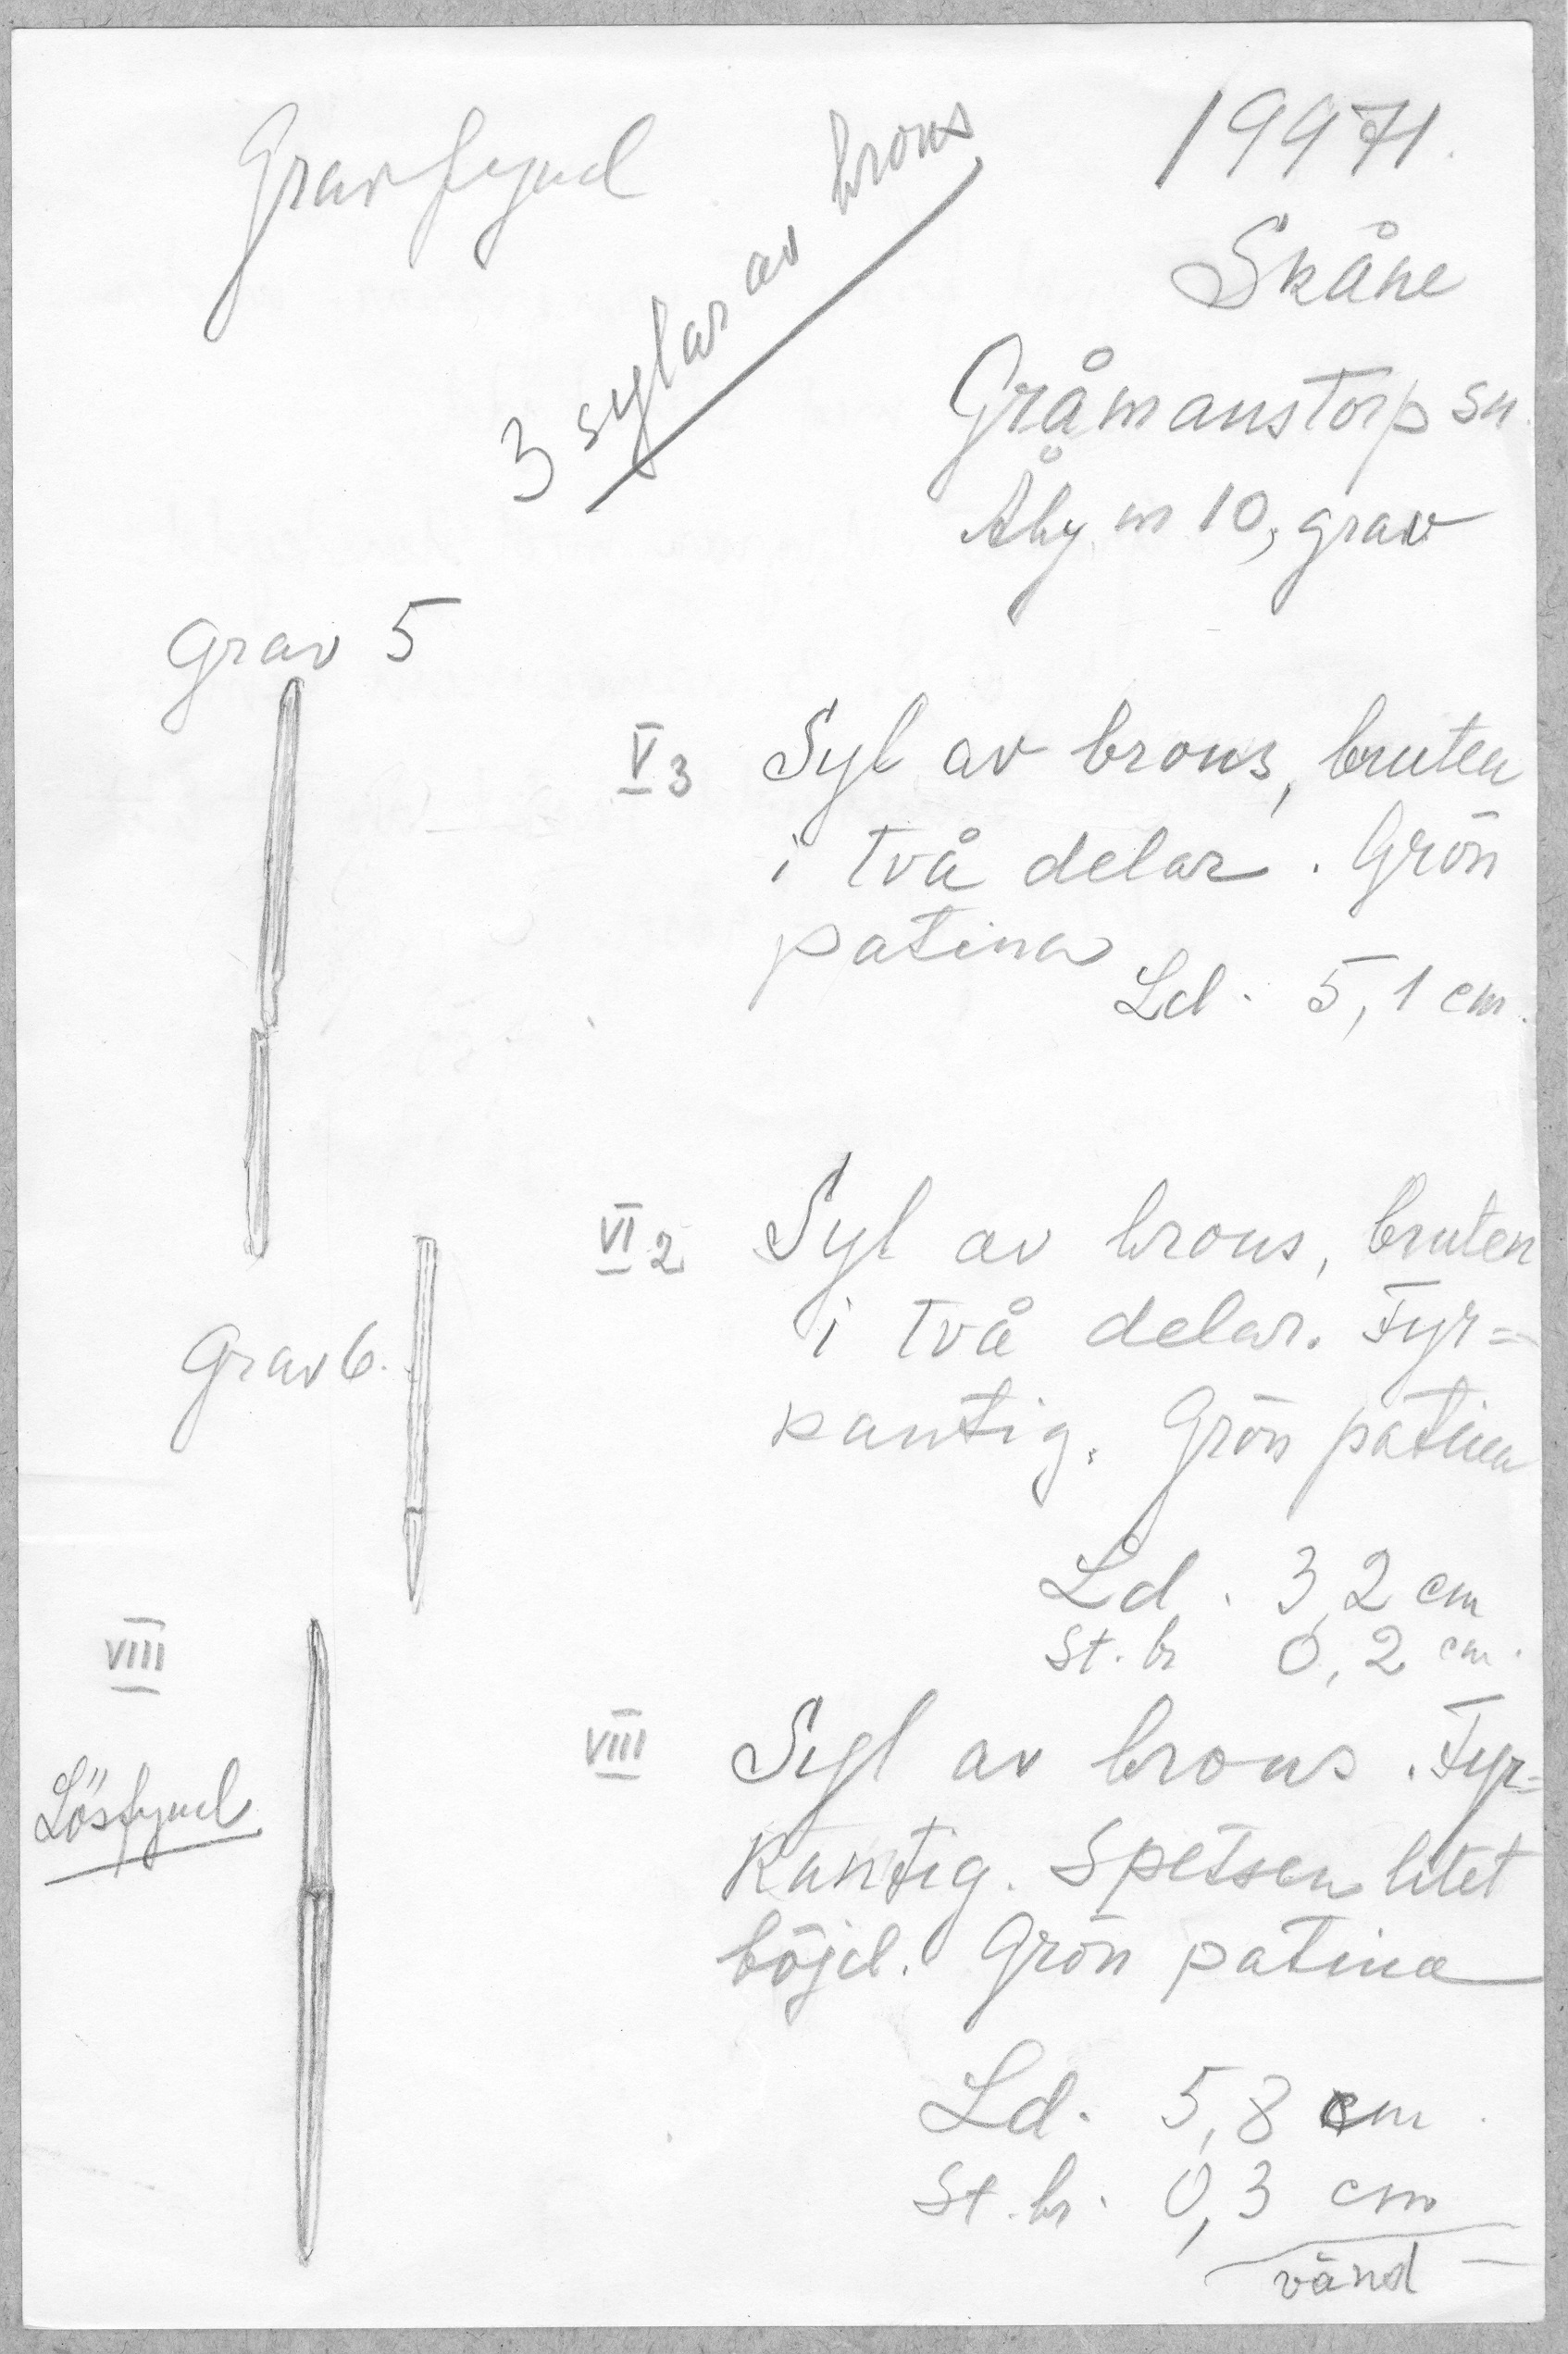 Gravfynd
3 sylar av brons
19971.
Skåne
Gråmanstorp sn.
Åby nr 10, grav
Grav 5
V 3 Syl av brons, bruten
i två delar. Grön
patina
Ld. 5,1 cm.
VI 2 Syl av brons, bruten
i två delar. Fyr=
kantig. Grön patina
Grav 6.
Ld. 3,2 cm
St. br 0,2 cm.
VIII
Lösfynd
VIII Syl av brons. Fyr=
kantig. Spetsen litet
böjd. Grön patina
Ld. 5,8 cm.
St. br. 0,3 cm
vänd